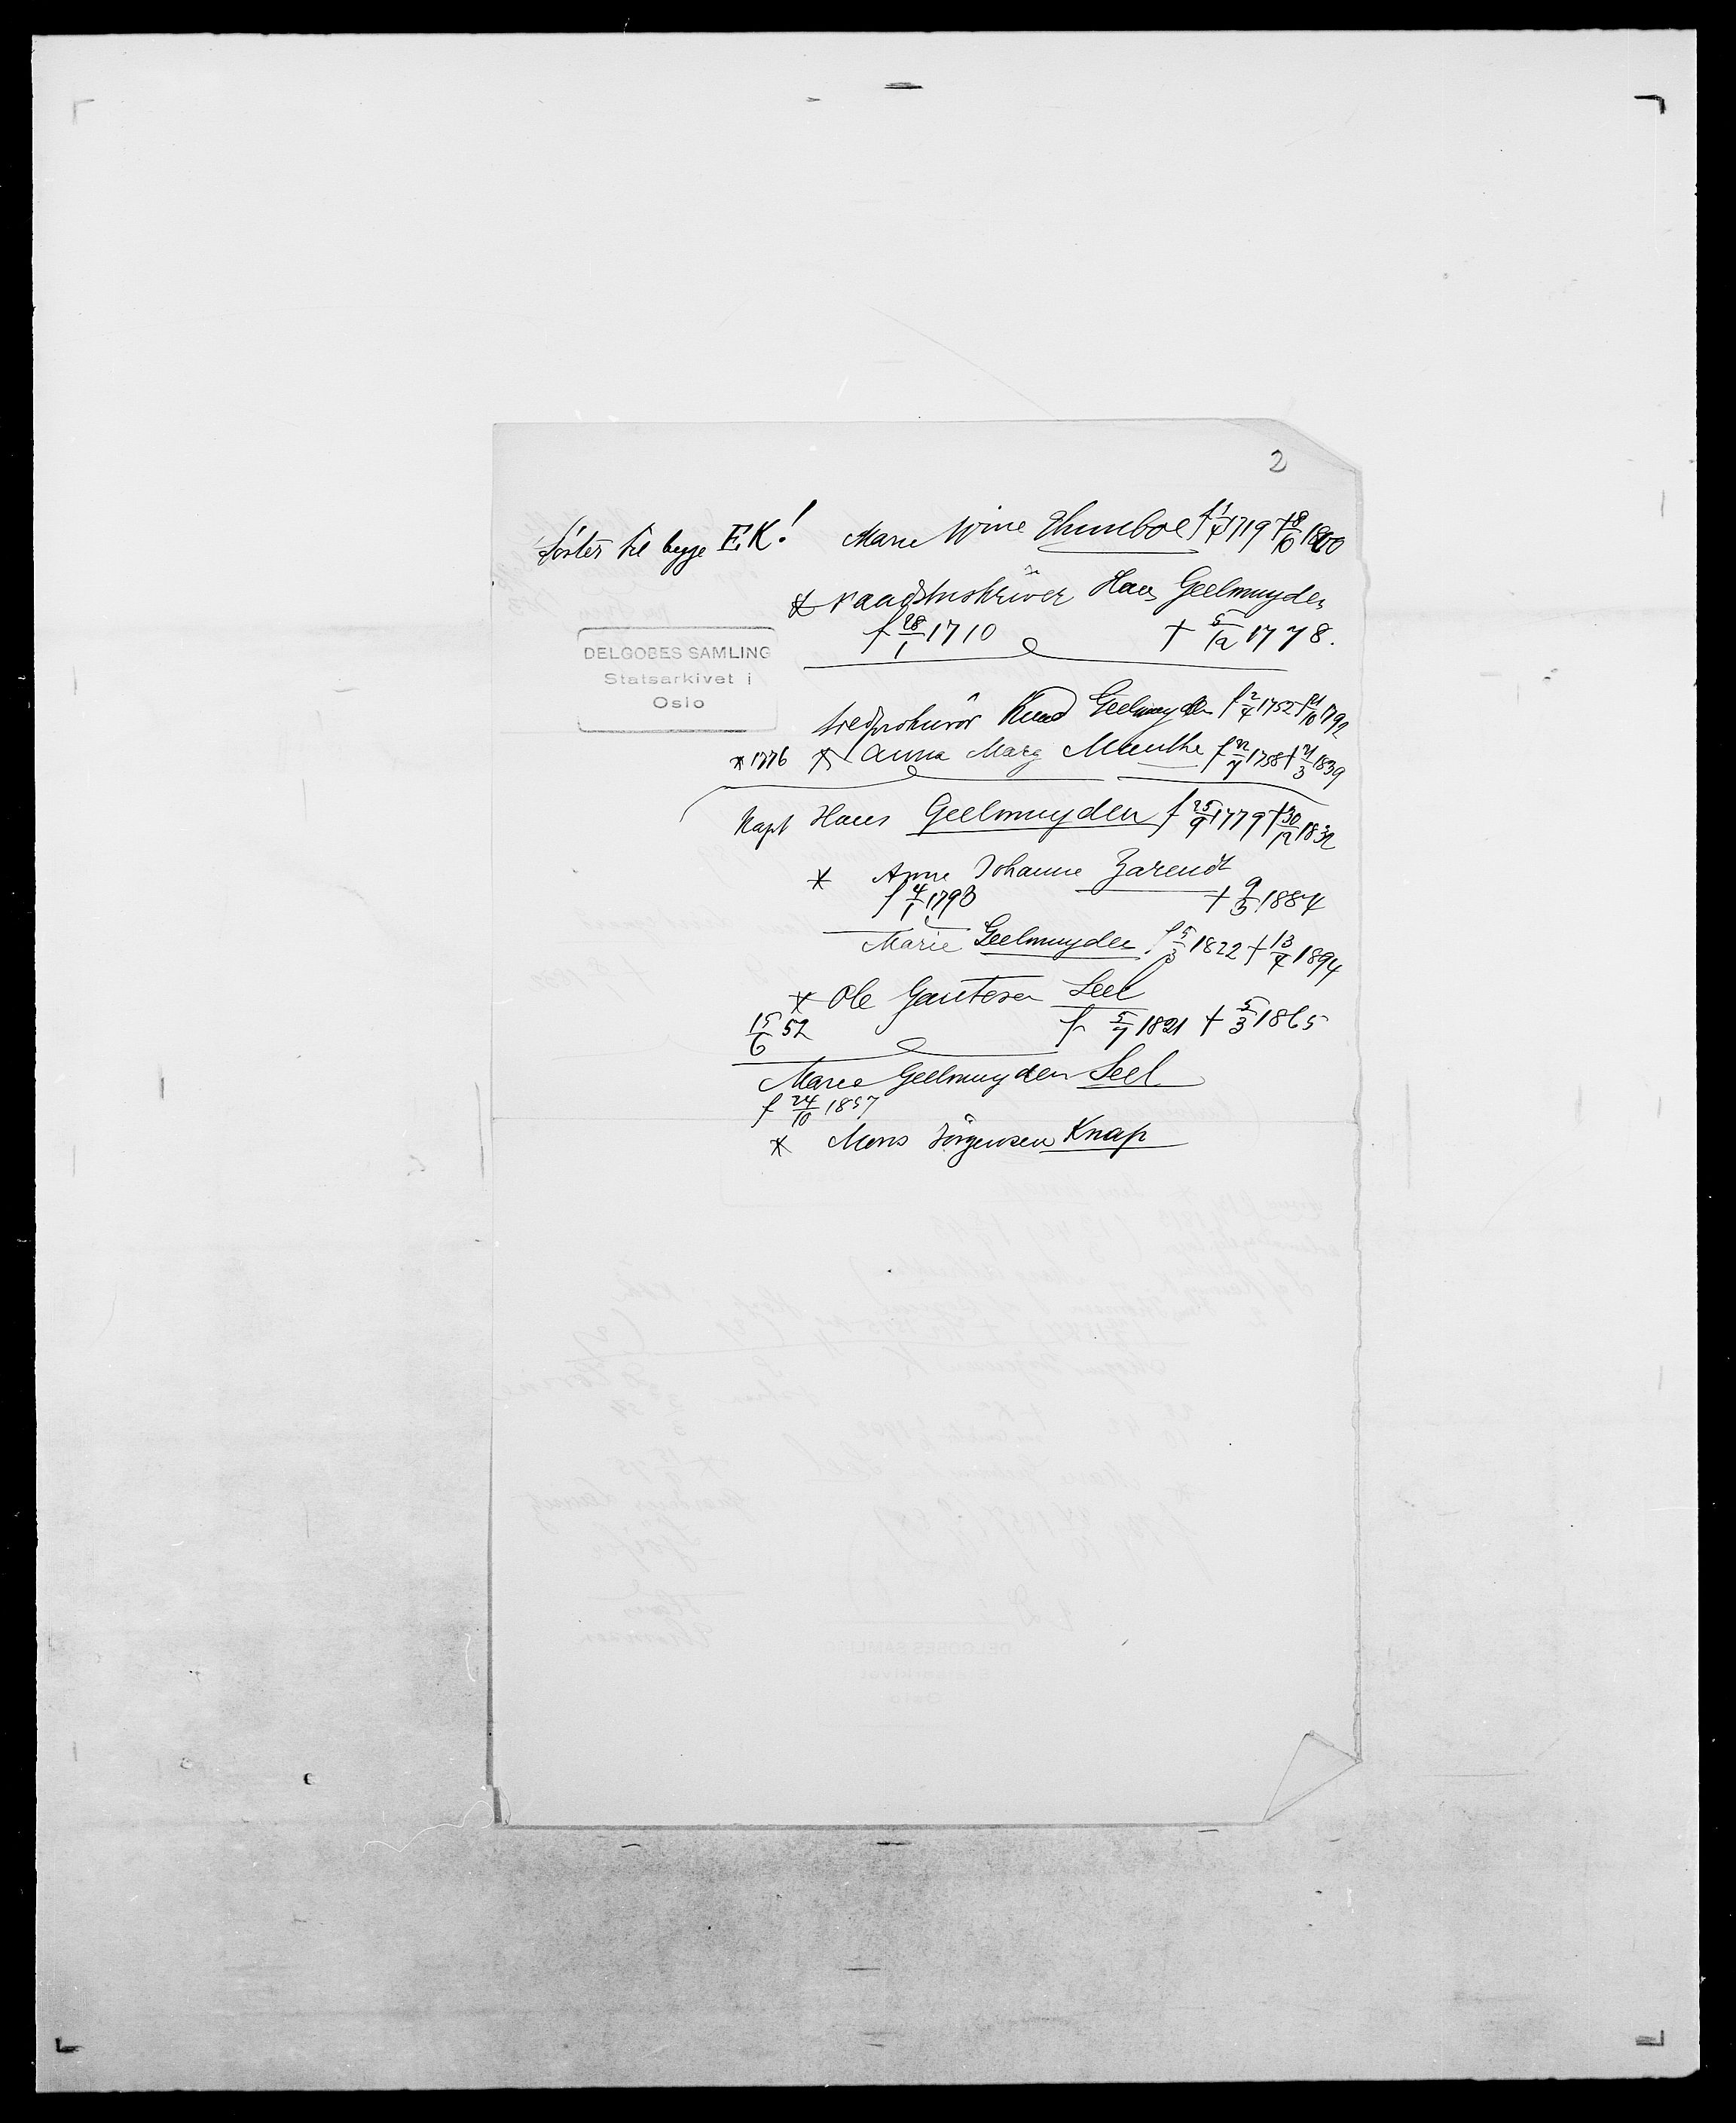 2
Söster til begge EK! Marie Wine Thumboe f 1/4 1719 † 8/10 1800
* raadstuskriver Hans Geelmuyden
f 28/1 1710 † 5/12 1778.
DELGOBES SAMLING
Statsarkivet i
Oslo
Knud Geelmuyden f 2/4 1752 † 21/10 1792
* 1776 * Anna Marg Munthe f 22/7 1758 † 21/3 1839
Kapt Hans Geelmuyden f 25/9 1779 † 30/12 1832
* Anne Johanne Barendt
f 4/1 1793 † 9/3 1884
Marie Geelmuyden f 5/3 1822 † 13/4 1894
* Ole Gautesen Seel
15/6 52 f 5/7 1821 † 5/3 1865
Marie Geelmuyden Seel
f 24/10 1857
* Mons Jörgensen Knap